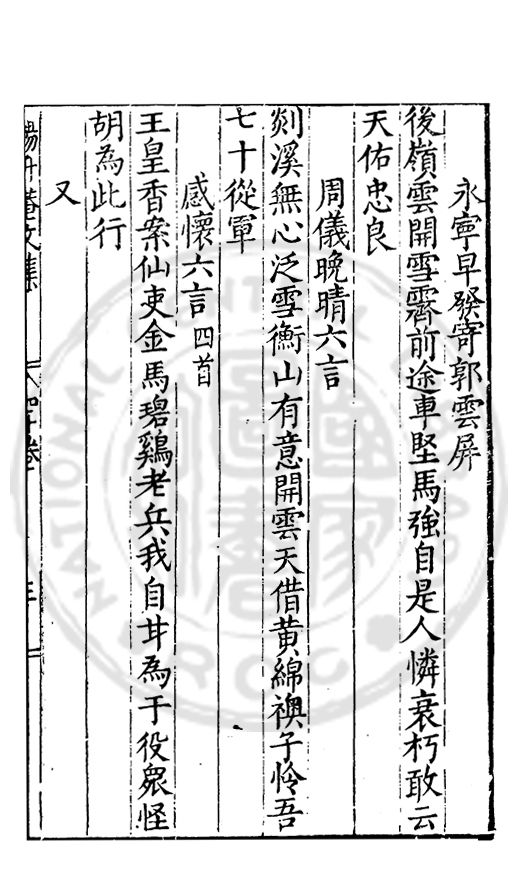 永寧早發寄郭雲屏
後嶺雲開雪霽前途車堅馬強自是人憐衰朽敢云
天佑忠良
周儀晚晴六言
剡溪無心泛雪衡山有意開雲天借黃綿襖子怜吾
七十從軍
感懷六言四首
玉皇香案仙吏金馬碧鷄老兵我自甘為于役衆怪
胡為此行
又